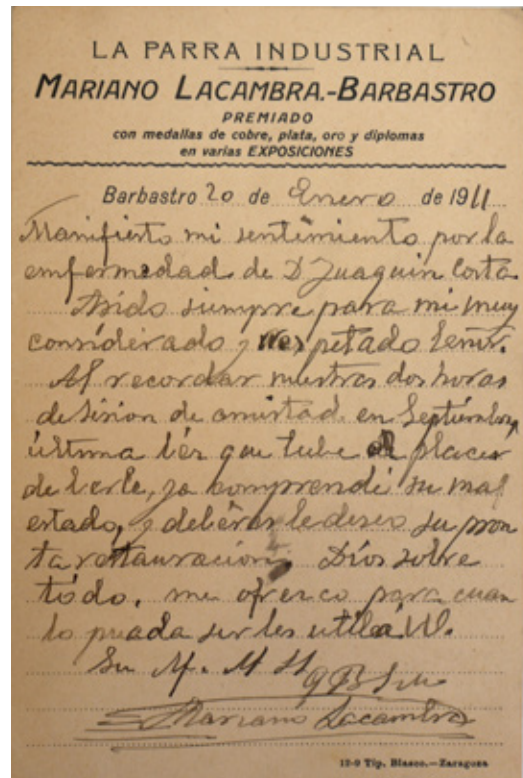 LA PARRA INDUSTRIAL
MARIANO LACAMBRA.-BARBASTRO
PREMIADO
con medallas de cobre, plata, oro y diplomas
en varias EXPOSICIONES
Barbastro 20 de Enero de 1911
Manifiesto mi sentimiento por la
enfermedad de D Juaquin Costa
Asido siempre para mi muy
considerado y respetado Señor.
Al recordar nuestras dos horas
de Sision de amistad en Septiembre
última bér que tube el placer
de berle, ya comprendi su mal
estado, y debéras le deseo su pron
ta restauracion, Dios sobre
tódo, me ofrenco para cuan
lo puada serles util á V.
Su
Mariano Lacambra
12-9 Tip. Blasco.—Zaragoza